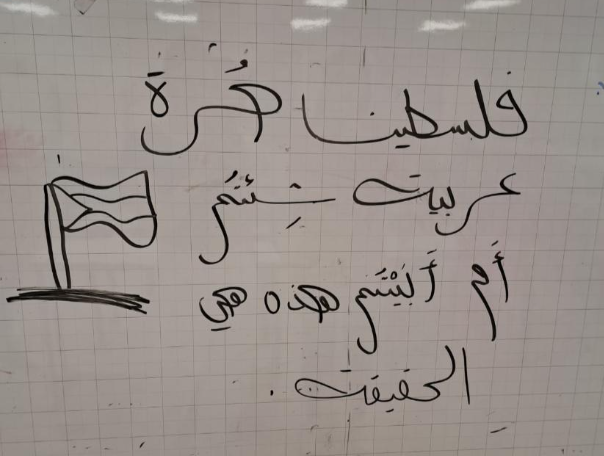 فلسطيننا حُرة
عربيت شِئتُم
أَم أَبَيْتُم هذه هي
الحقيقت.